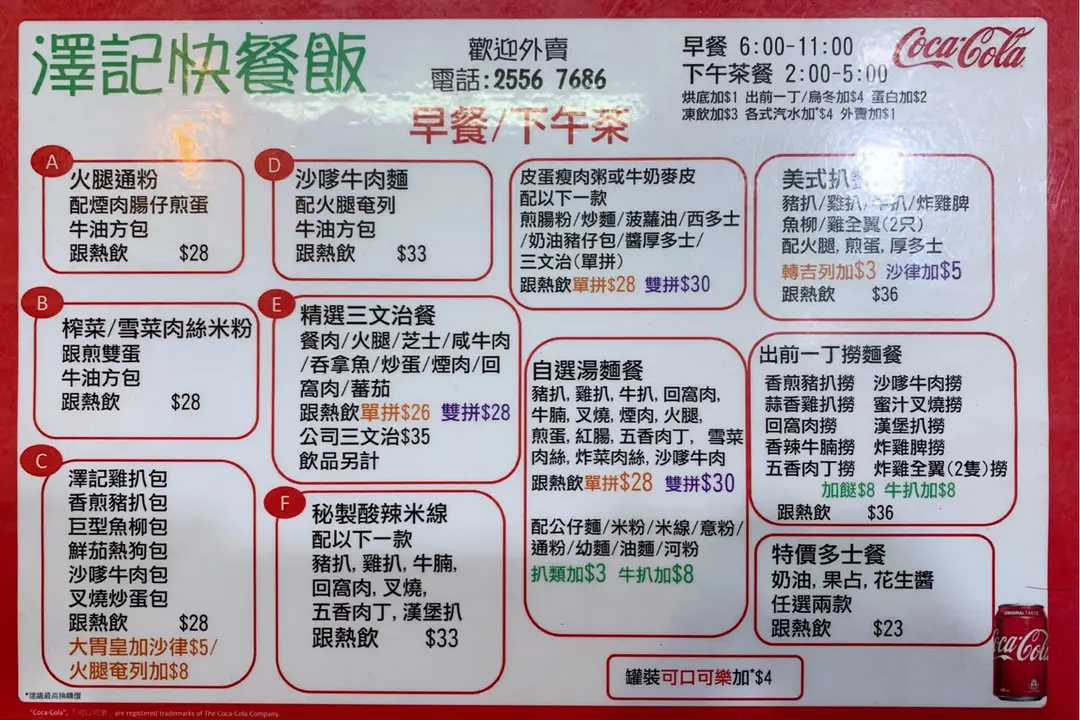 澤記快餐飯
歡迎外賣
電話:2556 7686
早餐/下午茶
早餐 6:00-11:00
下午茶餐 2:00-5:00
烘底加$1 出前一丁/烏冬加$4 蛋白加$2
凍飲加$3 各式汽水加*$4 外賣加$1
Coca-Cola
A
火腿通粉
配煙肉腸仔煎蛋
牛油方包
跟熱飲 $28
B
榨菜/雪菜肉絲米粉
跟煎雙蛋
牛油方包
跟熱飲 $28
C
澤記雞扒包
香煎豬扒包
巨型魚柳包
鮮茄熱狗包
沙嗲牛肉包
叉燒炒蛋包
跟熱飲 $28
大胃皇加沙律$5/
火腿奄列加$8
D
沙嗲牛肉麵
配火腿奄列
牛油方包
跟熱飲 $33
E
精選三文治餐
餐肉/火腿/芝士/咸牛肉
/吞拿魚/炒蛋/煙肉/回
窩肉/蕃茄
跟熱飲單拼$26 雙拼$28
公司三文治$35
飲品另計
F
秘製酸辣米線
配以下一款
豬扒, 雞扒, 牛腩,
回窩肉, 叉燒,
五香肉丁, 漢堡扒
跟熱飲 $33
皮蛋瘦肉粥或牛奶麥皮
配以下一款
煎腸粉/炒麵/菠蘿油/西多士
/奶油豬仔包/醬厚多士/
三文治(單拼)
跟熱飲單拼$28 雙拼$30
自選湯麵餐
豬扒, 雞扒, 牛扒, 回窩肉,
牛腩, 叉燒, 煙肉, 火腿,
煎蛋, 紅腸, 五香肉丁, 雪菜
肉絲, 炸菜肉絲, 沙嗲牛肉
跟熱飲單拼$28 雙拼$30
配公仔麵/米粉/米線/意粉/
通粉/幼麵/油麵/河粉
扒類加$3 牛扒加$8
美式扒
豬扒/雞扒/牛扒/炸雞脾
魚柳/雞全翼(2只)
配火腿, 煎蛋, 厚多士
轉吉列加$3 沙律加$5
跟熱飲 $36
出前一丁撈麵餐
香煎豬扒撈 沙嗲牛肉撈
蒜香雞扒撈 蜜汁叉燒撈
回窩肉撈 漢堡扒撈
香辣牛腩撈 炸雞脾撈
五香肉丁撈 炸雞全翼(2隻)撈
加餸$8 牛扒加$8
跟熱飲 $36
特價多士餐
奶油, 果占, 花生醬
任選兩款
跟熱飲 $23
罐裝可口可樂加*$4
ORIGINAL TASTE
Coca-Cola
*建議最高換購價
"Coca-Cola", 「可口可樂」 are registered trademarks of The Coca-Cola Company.